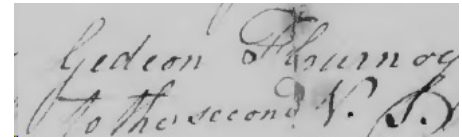 Gedeon Flournoy
to the second V. S.